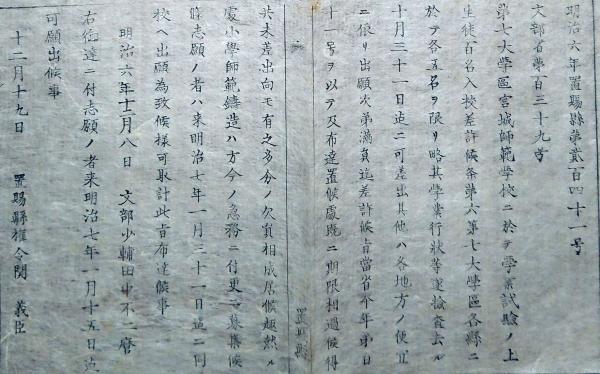 明治六年置賜縣第貳百四十一号
文部省第百三十九号
第七大学區宮城師範学校ニ於テ学業試験ノ上
生徒百名入校差許候条第六第七大学區各縣ニ
於テ各五名ヲ限リ略其学業行状等逐檢査去ル
十月三十一日迠ニ可差出其他ハ各地方ノ便宜
ニ依リ出願次第満員迠差許候旨當省今年第百
十一号ヲ以テ及布達置候處既ニ期限相過候得
置賜縣
共未差出向モ有之多分ノ欠員相成居候趣然ル
處小學師範鋳造ハ方今ノ急務ニ付更ニ募集候
條志願ノ者ハ来明治七年一月三十一日迠ニ同
校ヘ出願為致候様可取計此旨布達候事
明治六年十二月八日 文部少輔田中不二麿
右伯達ニ付志願ノ者来明治七年一月十五日迠
可願出候事
十二月十九日 置賜縣權令関 義臣